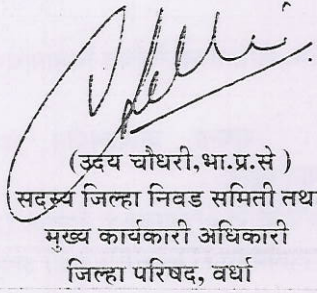 (उदय चौधरी,भा.प्र.से )
सदस्य जिल्हा निवड समिती तथा
मुख्य कार्यकारी अधिकारी
जिल्हा परिषद, वर्धा